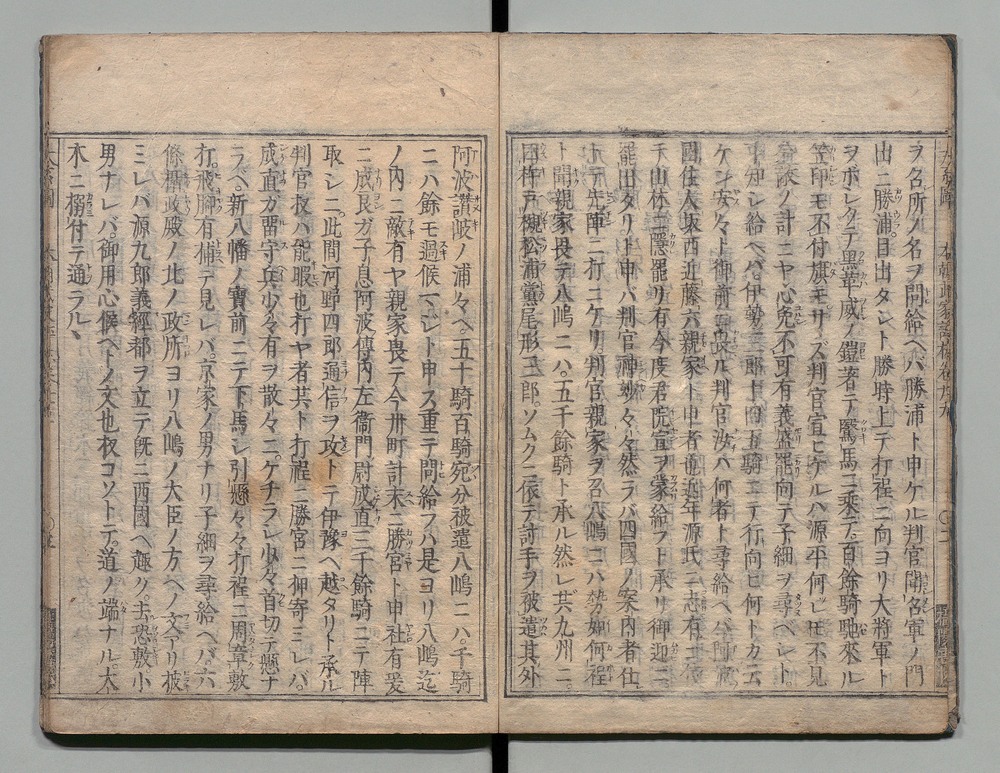 ヲ名所ノ名ヲ問給ヘハ勝浦ト申ケル判官聞名軍ノ門
出ニ勝浦目出タシト勝時上テ打程ニ向ヨリ大將軍ト
ヲボシクテ黒革威ノ鎧著テ馬ニ乘テ百餘騎馳來ル
笠印モ不付旗モサヽズ判官宣ヒケルハ源平何レトモ不見
敵ノ計ニヤ心免不可有義盛罷向テ子細ヲ尋ヘシト
下知シ給ヘバ伊勢三郎十四五騎ニテ行向ヒ何トカ云
ケン安々ト御前ニ畏ル判官汝ハ何者ト尋給ヘバ阿波
國住人坂西近藤六親家ト申者也近年源氏ニ志有
テ山林ニ隱罷リ有今度君院宣ヲ蒙給フト承リ御迎ニ
罷出タリト申バ判官神妙々々然ラバ四國ノ案内者仕
ホテ先陣ニ打ニケリ判官親家ヲ召八嶋ニハ勢如何程
ト問親家畏テ八嶋ニハ五千餘騎ト承ル然レ共九州ニ
臼杵戸槻松浦黨尾形三郎ソムクニ依テ討手ヲ被遣其外
阿波讃岐ノ浦々ヘ五十騎百騎宛分被遣八嶋ニハ千騎
ニハ餘モ過候ハシト申ス重テ問給フハ是ヨリ八嶋迄
ノ内ニ敵有ヤ親家畏テ今卅町計末ニ勝宮ト申社有爰
ニ成良ガ子息阿波傳内左衞門尉成直三千餘騎ニテ陣
取シニ此間河野四郎通信ヲ攻トテ伊豫ヘ越タリト承ル
判官扨ハ能服也打ヤ者共ト打程ニ勝宮ニ押寄ミレバ
成直ガ留守兵少々有ヲ散々ニケチラシ小々首切テ懸ナ
ラヘ新八幡ノ寳前ニテ下馬シ引懸々々打程ニ周章敷
打飛脚有捕テ見レバ京家ノ男ナリ子細ヲ尋給ヘバ六
條攝政殿ノ北ノ政所ヨリ八嶋ノ大臣ノ方ヘノ文アリ披
ミレバ源九郎義經都ヲ立テ既ニ西國ヘ趣ク去恐敷小
男ナレバ御用心候ヘトノ文也扠コソトテ道ノ端ナル大
木ニ搦付テ通ラル